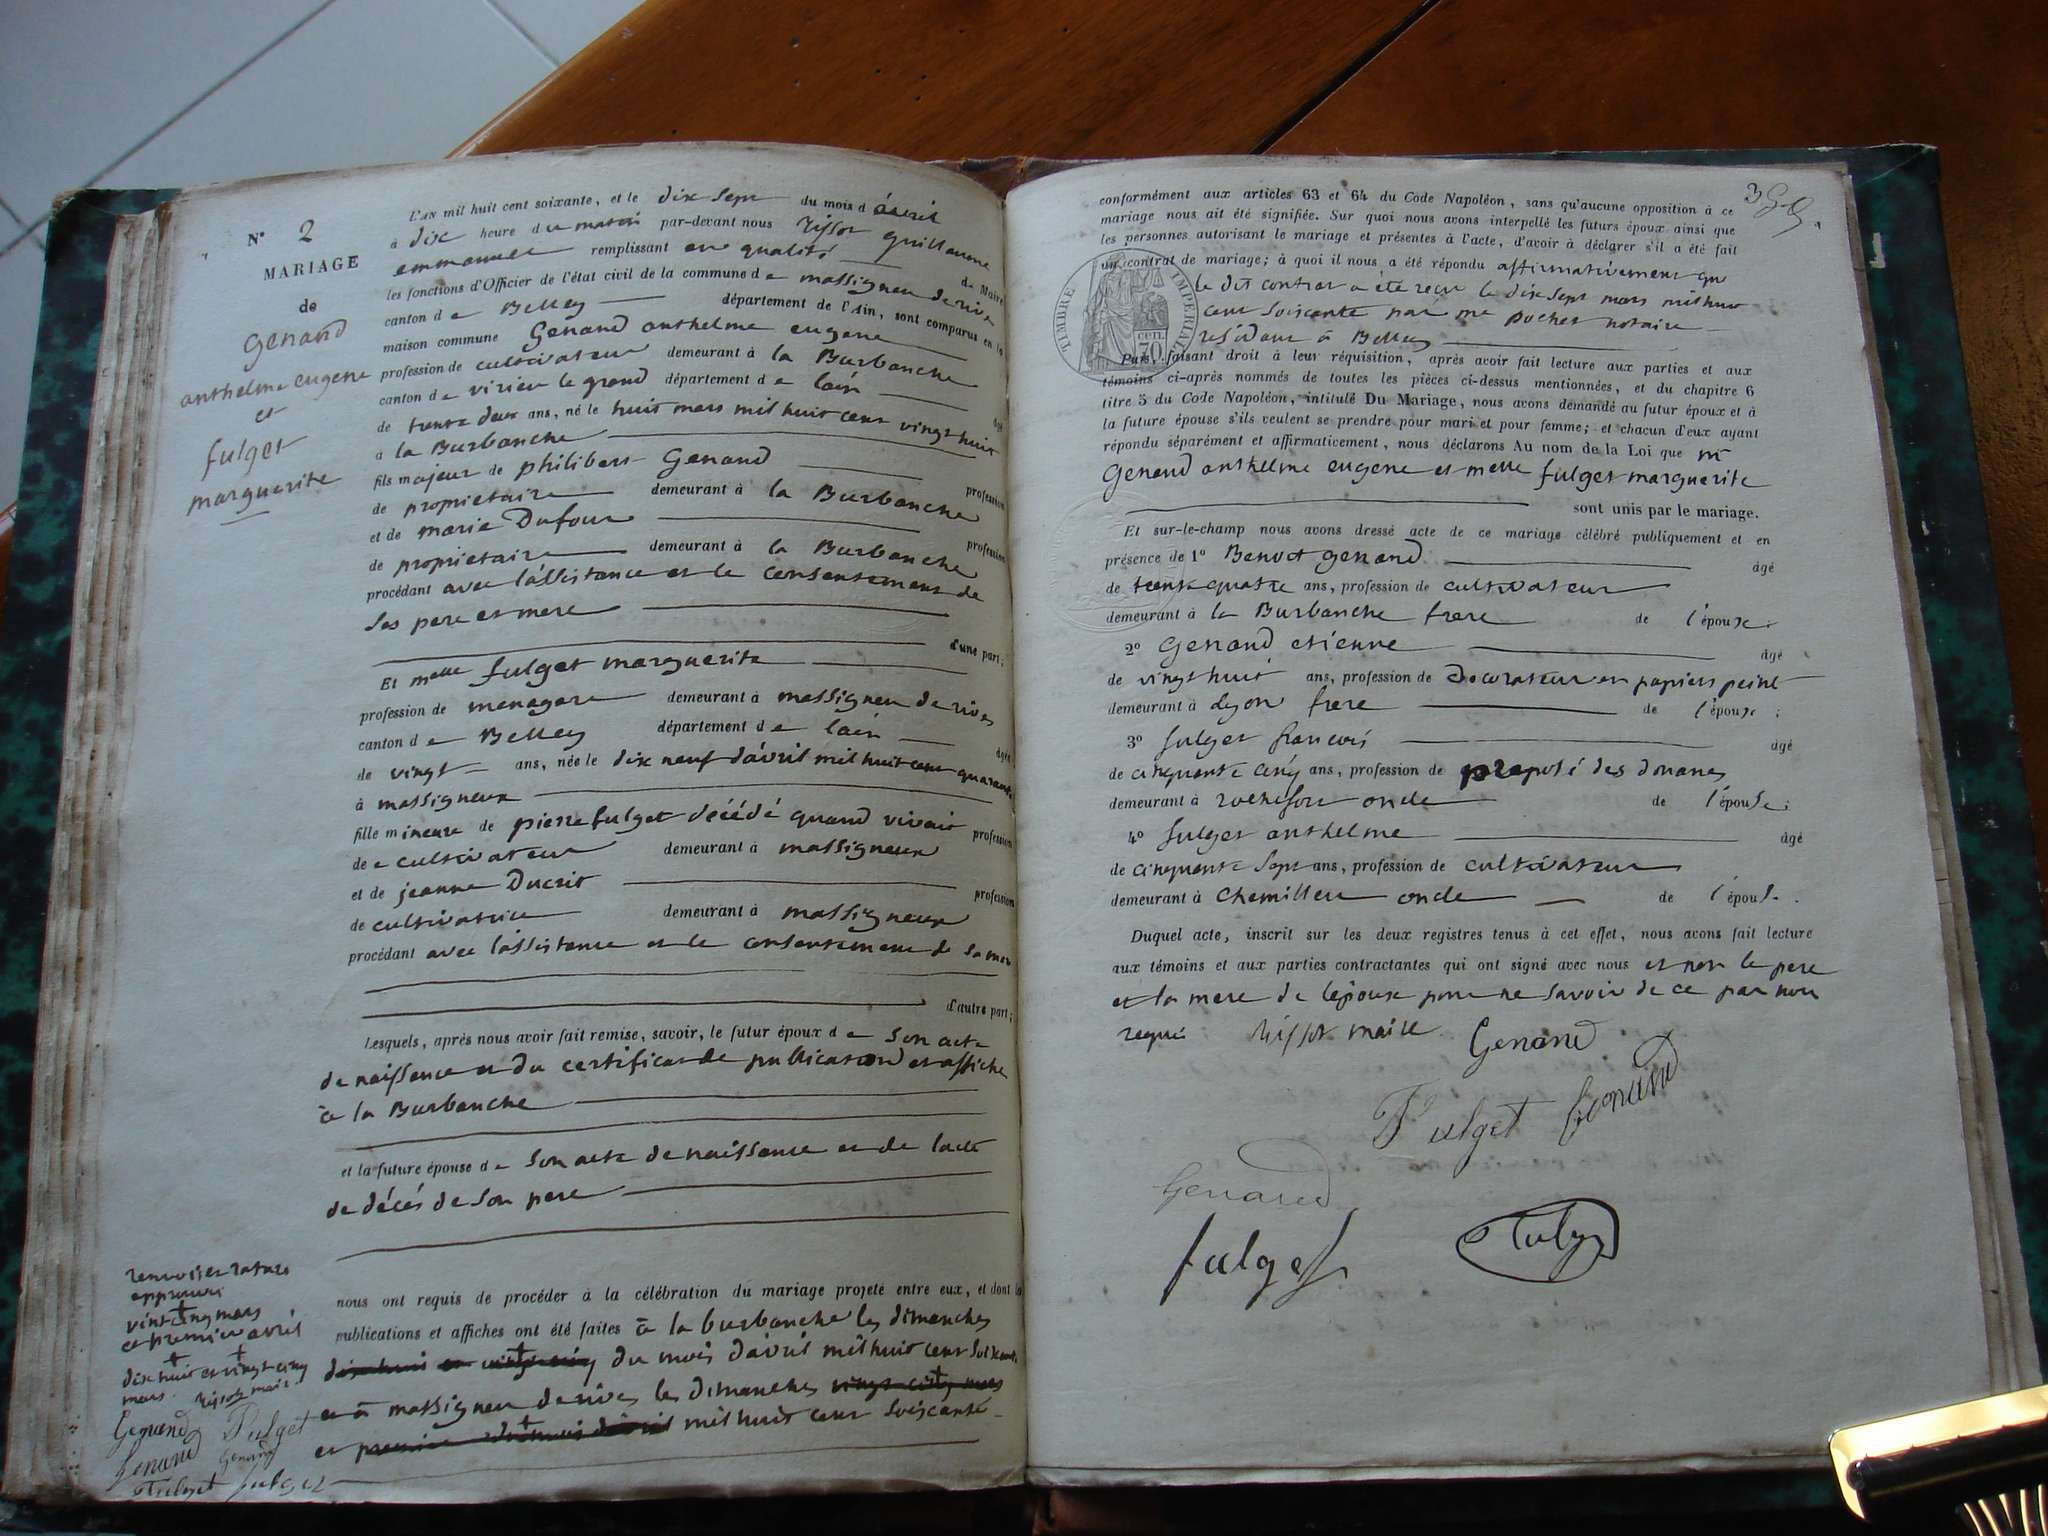 N° 2
MARIAGE
de
Genand
anthelme eugene
et
fulget
marguerite
L'AN mil huit cent soixante, et le dix sept du mois d'avril
à dix heure du matin par-devant nous Rissot guillaume
emmanuel remplissant en qualité de Maire
les fonctions d'Officier de l'état civil de la commune de massigneu de rives
canton de Belley département de l'Ain, sont comparus en la
maison commune Genand anthelme eugene
profession de cultivateur demeurant à la Burbanche
canton de virieu le grand département de lain âgé
de trente deux ans, né le huit mars mil huit cent vingt huit
à la Burbanche
fils majeur de philibert Genand profession
de propriétaire demeurant à la Burbanche
et de marie Dufour profession
de propriétaire demeurant à la Burbanche
procédant avec l'assistance et le consentement de
ses pere et mere
d'une part;
Et melle fulget marguerite
profession de menagere demeurant à massigneu de rives
canton de Belley département de lain âgée
de vingt ans, née le dix neuf d'avril mil huit cent quarante
à massigneux
fille mineure de pierre fulget décédé quand vivait profession
de cultivateur demeurant à massigneux
et de jeanne Ducrit profession
de cultivatrice demeurant à massigneux
procédant avec l'assistance et le consentement de sa mere
d'autre part;
Lesquels, après nous avoir fait remise, savoir, le futur époux de son acte
de naissence et du certificat de publication et affiche
à la Burbanche
et la future épouse de son acte de naissence et de lacte
de décés de son pere
nous ont requis de procéder à la célébration du mariage projeté entre eux, et dont les
publications et affiches ont été faites à la burbanche les dimanches
dix huit et vingt cinq du mois d'avril mil huit cent soixante
et à massigneu de rives les dimanches vingt cinq mars
et premier du mois d'avril mil huit cent soixante
renvois et rature
approuvé
vint cinq mars
et premier avril
dix huit et vingt cinq
mars. Rissot maire
Genand Fulget
Genand Genand
Fulget fulget
3
conformément aux articles 63 et 64 du Code Napoléon, sans qu'aucune opposition à ce
mariage nous ait été signifiée. Sur quoi nous avons interpellé les futurs époux ainsi que
les personnes autorisant le mariage et présentes à l'acte, d'avoir à déclarer s'il a été fait
un contrat de mariage; à quoi il nous a été répondu affirmativement que
le dit contrat a été reçu le dix sept mars mil huit
cent soixante par me pochet notaire
résidant à Belley
TIMBRE IMPERIAL
70 CENT.
Puis, faisant droit à leur réquisition, après avoir fait lecture aux parties et aux
témoins ci-après nommés de toutes les pièces ci-dessus mentionnées, et du chapitre 6
titre 5 du Code Napoléon, intitulé Du Mariage, nous avons demandé au futur époux et à
la future épouse s'ils veulent se prendre pour mari et pour femme; et chacun d'eux ayant
répondu séparément et affirmativement, nous déclarons Au nom de la Loi que mr
Genand anthelme eugene et melle fulget marguerite
sont unis par le mariage.
Et sur-le-champ nous avons dressé acte de ce mariage célébré publiquement et en
présence de 1° Benoit genand âgé
de trente quatre ans, profession de cultivateur
demeurant à la Burbanche frere de l'époux.
2° Genand etienne âgé
de vingt huit ans, profession de decorateur en papiers peint
demeurant à Lyon frere de l'époux;
3° fulget francois âgé
de cinquante cinq ans, profession de préposé des douanes
demeurant à rochefort oncle de l'épouse;
4° fulget anthelme âgé
de cinquante sept ans, profession de cultivateur
demeurant à Chemilleu oncle de l'épouse.
Duquel acte, inscrit sur les deux registres tenus à cet effet, nous avons fait lecture
aux témoins et aux parties contractantes qui ont signé avec nous et non le pere
et la mere de l'epoux pour ne savoir de ce par nous
requi Rissot maire Genand
Fulget Genand
Genand
fulget Fulget